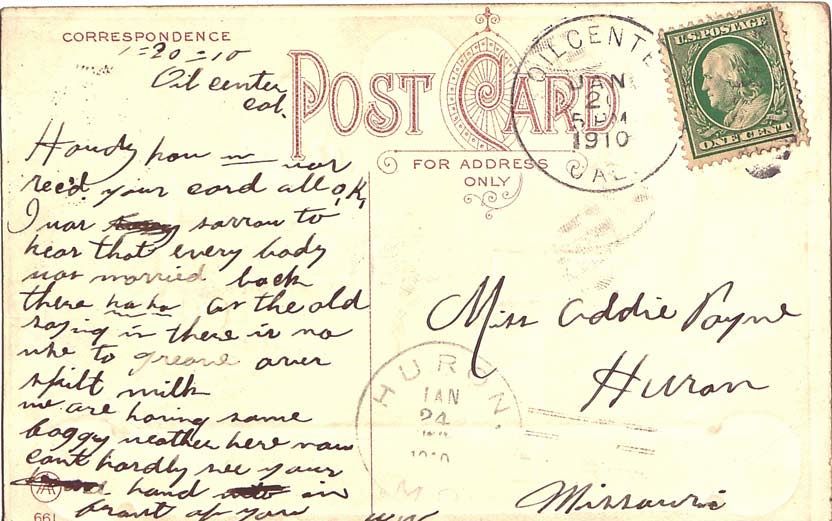 CORRESPONDENCE
1-20-10
Oil center
Cal.
POST CARD
FOR ADDRESS
ONLY
OILCENTE
JAN
2
5 PM
1910
CAL.
U.S. POSTAGE
ONE CENT
Howdy how
rec'd your card all O,K,
I was sorrow to
hear that every body
was married back
there ha ha as the old
saying is there is no
use to greave over
spilt milk
we are having some
foggy weather here now
cant hardly see your
hand in
frant of you
661
Miss Addie Payne
Huron
Missouri
HURON,
JAN
24
MO